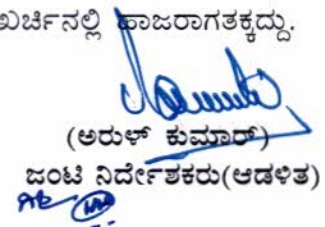 ಖರ್ಚಿನಲ್ಲಿ ಹಾಜರಾಗತಕ್ಕದ್ದು.
(ಅರುಳ್ ಕುಮಾರ್)
ಜಂಟಿ ನಿರ್ದೇಶಕರು(ಆಡಳಿತ)